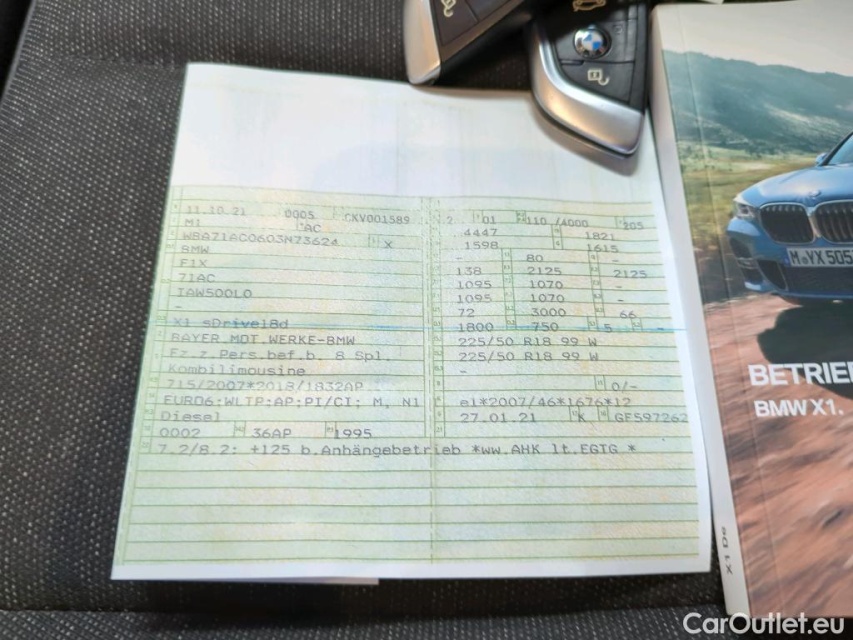 11.10.21 0005 CKV001589
M1 AC
WBA71AC0603N73624 X
BMW
F1X
71AC
IAW500L0
-
X1 sDrive18d
BAYER.MOT.WERKE-BMW
Fz.z.Pers.bef.b. 8 Spl.
Kombilimousine
715/2007*2018/1832AP
EURO6;WLTP;AP;PI/CI; M, N1
Diesel
0002 36AP 1995
7.2/8.2: +125 b.Anhängebetrieb *ww.AHK lt.EGTG *
2 01 110 /4000 205
4447 1821
1598 1615
- 80 -
138 2125 2125
1095 1070 -
1095 1070 -
72 3000 66
1800 750 5 -
225/50 R18 99 W
225/50 R18 99 W
-
0/-
e1*2007/46*1676*12
27.01.21 K GF597262
M YX 505
BETRIE
BMW X1.
X1 De
CarOutlet.eu